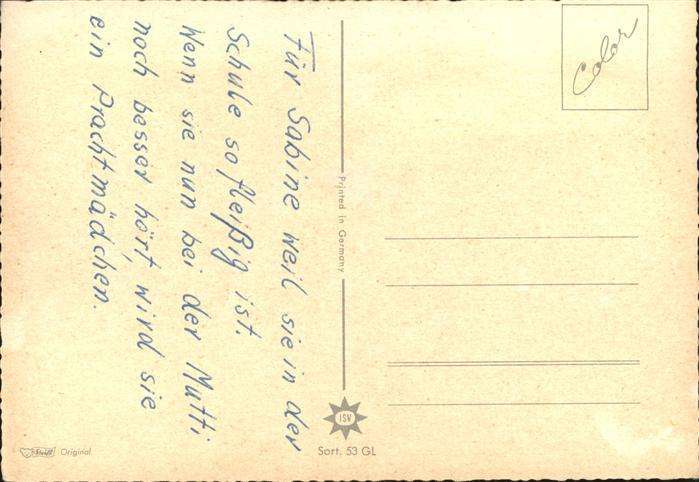 Für Sabine weil sie in der
Schule so fleißig ist.
Wenn sie nun bei der Mutti
noch besser hört, wird sie
ein Prachtmädchen.
Printed in Germany
Color
ISV
Sort. 53 GL
Steiff Original